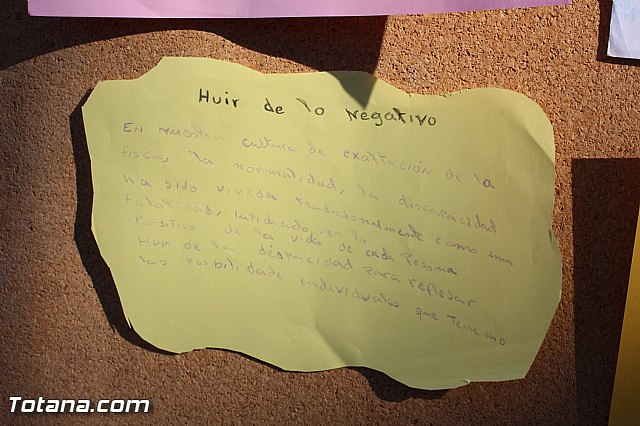 Huir de lo Negativo
EN nuestra cultura de exaltación de la
fiscas la normalidad, la discapacidad
ha sido vivida tradicionalmente como una
fatalidad, impidiendo ver lo
Porsitivo de la vida de cada Pesona
Huir de la despacidad para reflejar
las posibilidade individuales que tenemo
Totana.com